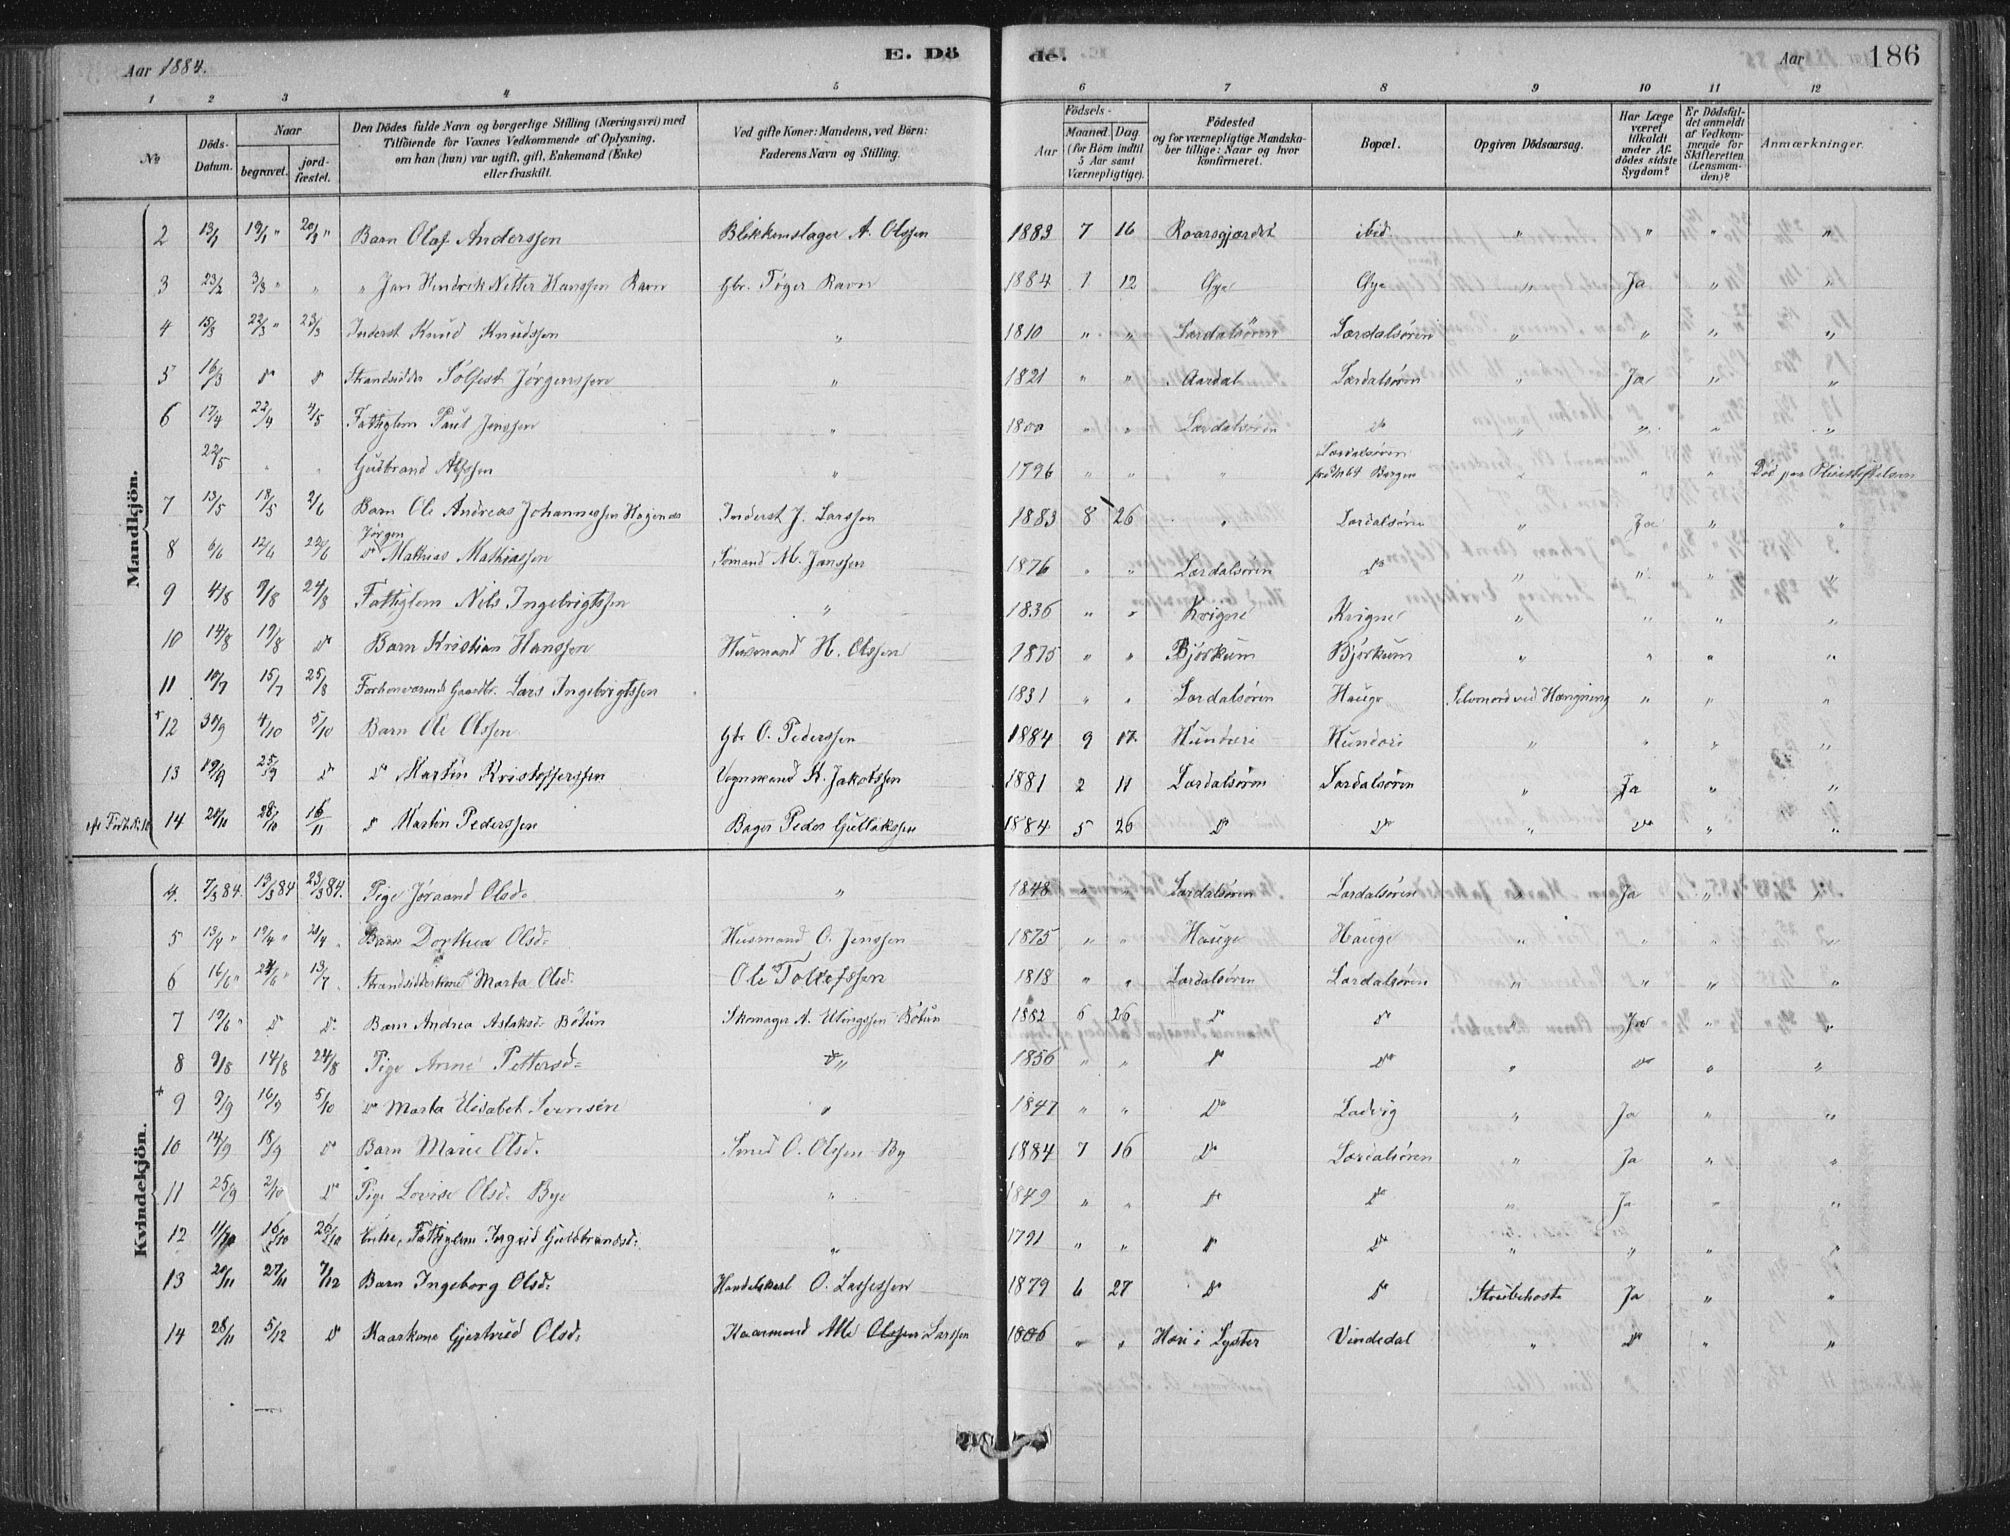 Aar 1884.
E. Dö
de.
Aar
186
1 2 3 4 5 6 7 8 9 10 11 12
No
Döds-Datum.
Naar
begravet.
jord-fæstet.
Den Dödes fulde Navn og borgerlige Stilling (Næringsvei) med
Tilföiende for Voxnes Vedkommende af Oplysning.
om han (hun) var ugift, gift, Enkemand (Enke)
eller fraskilt.
Ved gifte Koner: Mandens, ved Börn:
Faderens Navn og Stilling.
Aar
Födsels-
Maaned. Dag
(for Börn indtil
5 Aar samt
Værnepligtige).
Födested
og for værnepligtige Mandska-
ber tillige: Naar og hvor
konfirmeret.
Bopæl.
Opgiven Dödsaarsag.
Har Læge
været
tilkaldt
under Af-
dödes sidste
Sygdom?
Er Dödsfal-
det anmeldt
af Vedkom-
mende for
Skifteretten
(Lensman-
den)?
Anmærkninger.
Mandkjön.
2 13/1 19/1 " 20/3 " Barn Olaf Anderssen Blikkenslager A. Olssen 1883 7 16 Roarsgjærdet ibid " " " "
3 23/2 3/3 " " " Jan Hendrik Netter Hanssen Ravn Gbr. Töger Ravn 1884 1 12 Øye Øye " Ja " "
4 15/3 22/3 " 23/3 Inderst Knud Knudssen " 1810 " " Lærdalsören Lærdalsören " " " "
5 16/3 do do Strandsidder Solfest Jörgenssen " 1821 " " Aardal Lærdalsören " Ja " "
6 17/4 22/4 4/5 Fattiglem Paul Jenssen " 1800 " " Lærdalsören do " " " "
22/5 " " Gudbrand " 1796 " " " Lærdalsören Bergen " " " Död paa Pleiestiftelsen
7 13/5 18/5 2/6 Barn Ole Andreas Johannessen Hagenæs Inderst J. Larssen 1883 8 26 " Lærdalsören " Ja " "
8 6/6 12/6 22/6 do Jörgen Mathias Mathiassen Sömand M. Janssen 1876 " " Lærdalsören do " " " "
9 4/8 9/8 24/8 Fattiglem Nils Ingebrigtssen " 1836 " " Kvigne Kvigne " " " "
10 14/8 19/8 do Barn Kristian Hanssen Husmand H. Olssen 1875 " " Bjorkum Bjorkum " " " "
11 10/7 15/7 25/8 Forhenværende Gaardbr. Lars Ingebrigtssen 1831 " " Lærdalsören Hauge Selvmord ved Hængning " " "
12 30/9 4/10 5/10 Barn Ole Olssen Gbr O. Pederssen 1884 9 17 Hunderi Hunderi " " " "
13 19/9 25/9 do do Martin Kristofferssen Vognmand K. Jakobssen 1881 2 11 Lærdalsören Lærdalsören " Ja " "
14 28/10 16/11 do Martin Pederssen Bager Peder Gutlakssen 1884 5 26 do do " do " "
Kvindekjön.
4. 7/3 84. 13/3 84 23/3 84. Pige Joraand Olsd. " 1848 " " Lærdalsören Lærdalsören " Ja " "
5 13/4 " 19/4 " 20/4 " Barn Dorthea Olsd. Husmand O. Jenssen 1875 " " Hauge Hauge " " " "
6 16/6 " 24/6 " 13/7 . Strandsidderkone Marta Olsd. Ole Tollefssen 1818 " " Lærdalsören Lærdalsören " " " "
7 19/6 " do do Barn Andrea Aslaksd. Bötun Skomager A. Ellingssen Bötun 1882 6 26 do do " Ja " "
8 9/8 14/8 24/8 Pige Anne Pettersd. " 1856 " " do do " do " "
9 9/9 16/9 5/10 do Marta Elisabet " 1847 " " do Ladvig " Ja " "
10 14/9 18/9 do Barn Marie Olsd. Smed O. Olssen By 1884 7 16 do Lærdalsören " Ja " "
11 25/9 2/10 do Pige Lovise Olsd. Bye " 1849 " " do do " Ja " "
12 11/10 16/10 26/10 Enke, Fattiglem Ingrid Guldbrandsd. " 1791 " " do do " " " "
13 20/11 27/11 7/12 Barn Ingeborg Olsd. Handelskarl O. Lassessen 1879 6 27 do do Strubehoste Ja " "
14 28/11 5/12 do Kaarkone Gjertrud Olsd. Kaarmand Atle Olssen Larssen 1806 " " i Lyster Vindedal " do " "